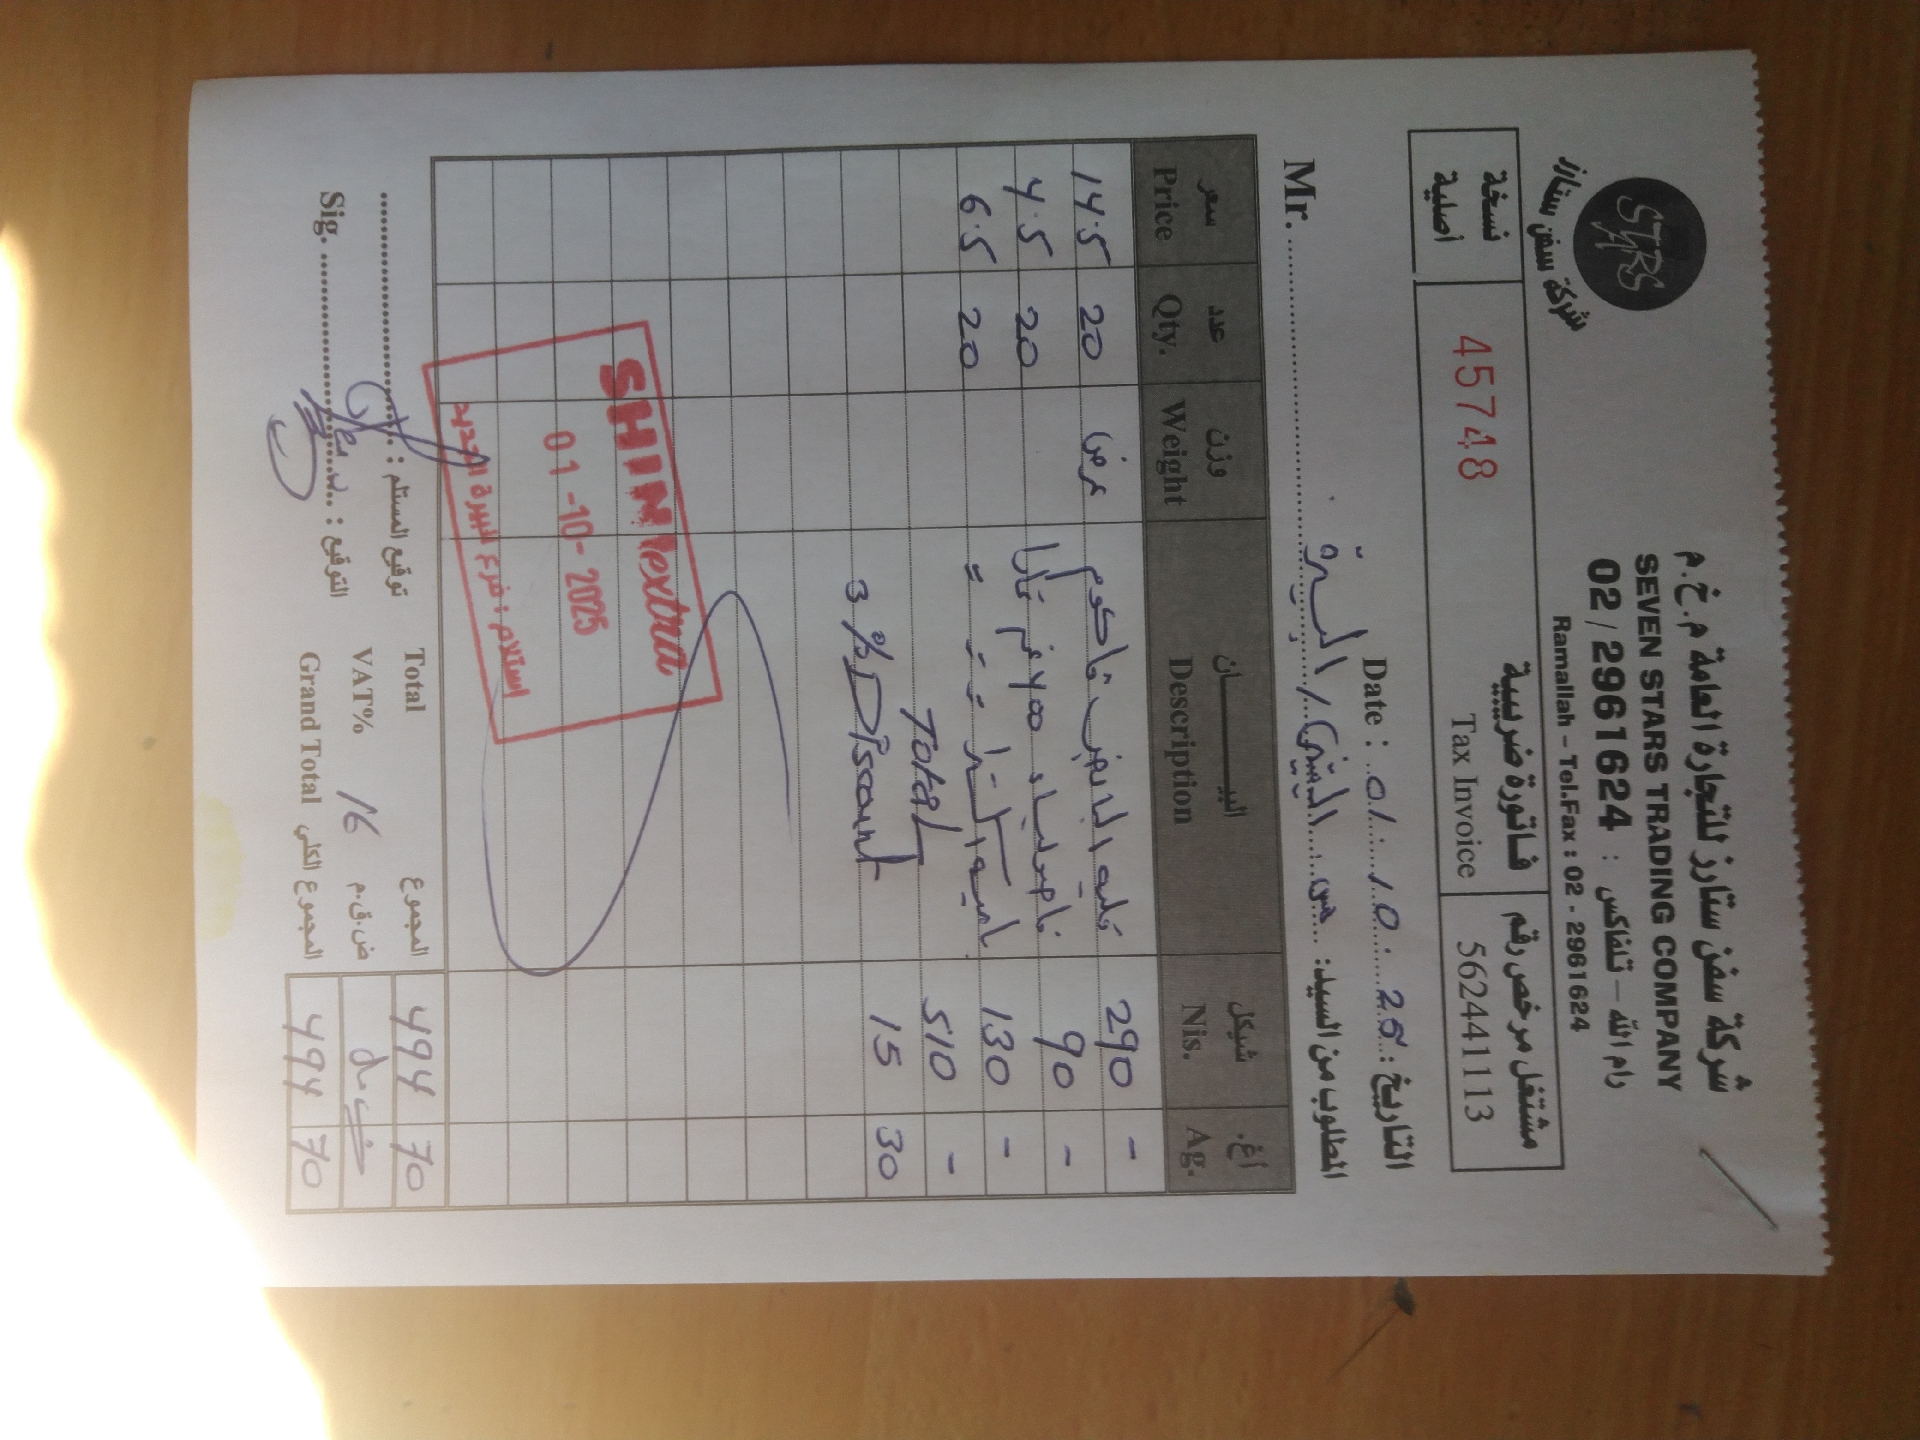 شركة سفن ستارز للتجارة العامة م.خ.م
SEVEN STARS TRADING COMPANY
02 / 2961624 : رام الله – تلفاكس
Ramallah – Tel.Fax : 02 - 2961624
STARS
شركة سفن ستارز
نسخة أصلية
45748
فاتورة ضريبية
Tax Invoice
مشتغل مرخص رقم
562441113
Date : 01 : 10 : 25 : التاريخ
Mr. المطلوب من السيد: البيرة
سعر عدد وزن البيــــان شيكل أغ.
Price Qty. Weight Description Nis. Ag.
14.5 20 عرض 290 -
4.5 20 90 -
6.5 20 130 -
Total 510 -
3 % Discount 15 30
SHINI extra
01-10-2025
استلام : فرع البيرة الجديد
توقيع المستلم : Total المجموع 494 70
VAT% 16 ض.ق.م
Sig. التوقيع : Grand Total المجموع الكلي 494 70